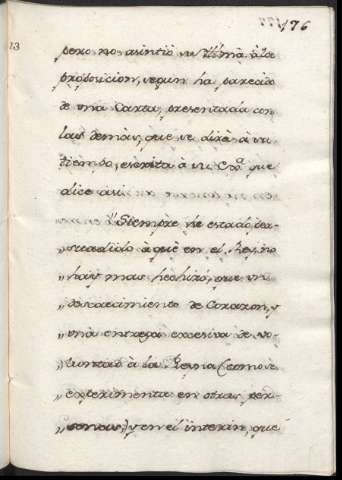 176
13
pero no asintió su Ilma à la
proposicion, segun ha parecido
de una Carta, presentada con
las demàs, que se dirà à su
tiempo, escrita à su que
dice asi
"Siempre he estado per-
suadido à què en el no
hay mas hechizo, que un
descaecimiento de Corazon, y
" una entrega excesiva de vo-
" luntad à la Reyna (como se
experimenta en otras per-
" sonas) y en el interin, què